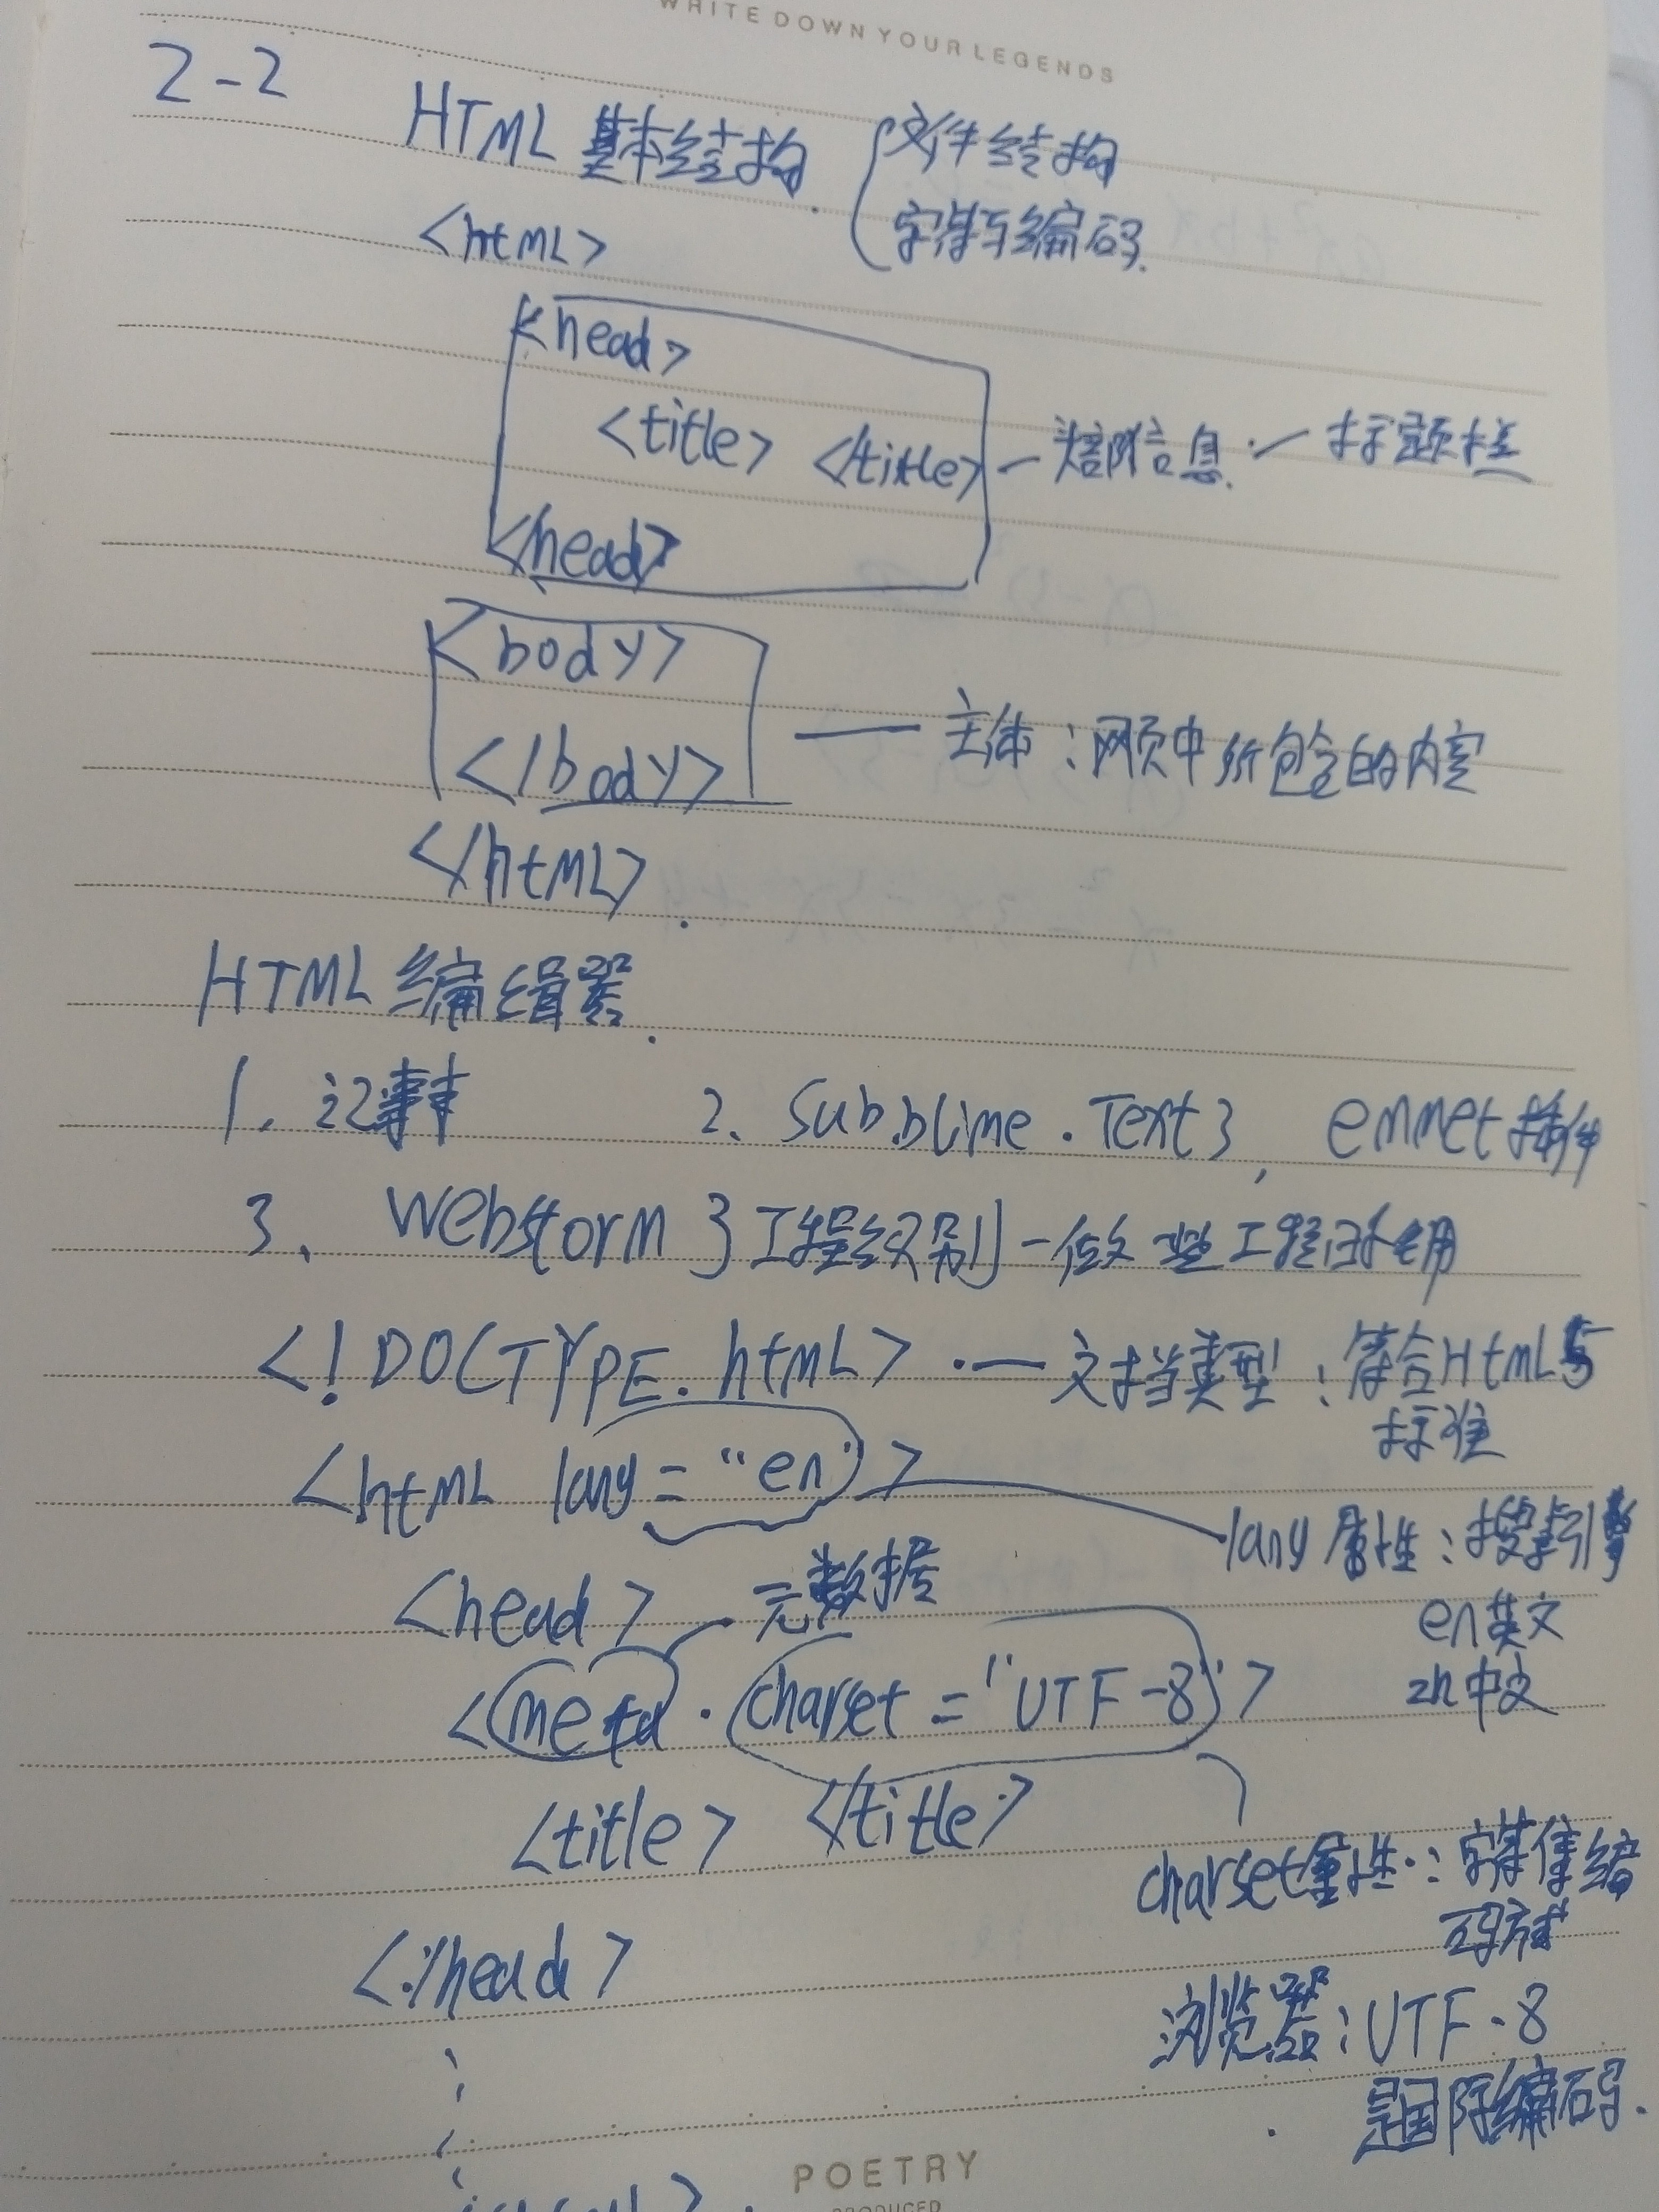 WRITE DOWN YOUR LEGENDS
2-2
HTML 基本结构. 文件结构
字符与编码.
<html>
<head>
<title> </title> — 头部信息. — 标题栏
</head>
<body>
</body> — 主体:网页中所包含的内容
</html>.
HTML 编缉器.
1. 记事本 2、Sub.blime.Text3, emmet插件
3、Webstorm 3 工程级别-做一些工程时使用
<!DOCTYPE.html>.— 文档类型:符合HtmL5
标准
<html lang="en">
lang属性:搜索引擎
<head> 元数据
en英文
<meta.charset="UTF-8"> zh中文
<title> </title>
charset属性.:字符集编
码方式
<./head>
浏览器:UTF-8
是国际编码.
POETRY
PRODUCED